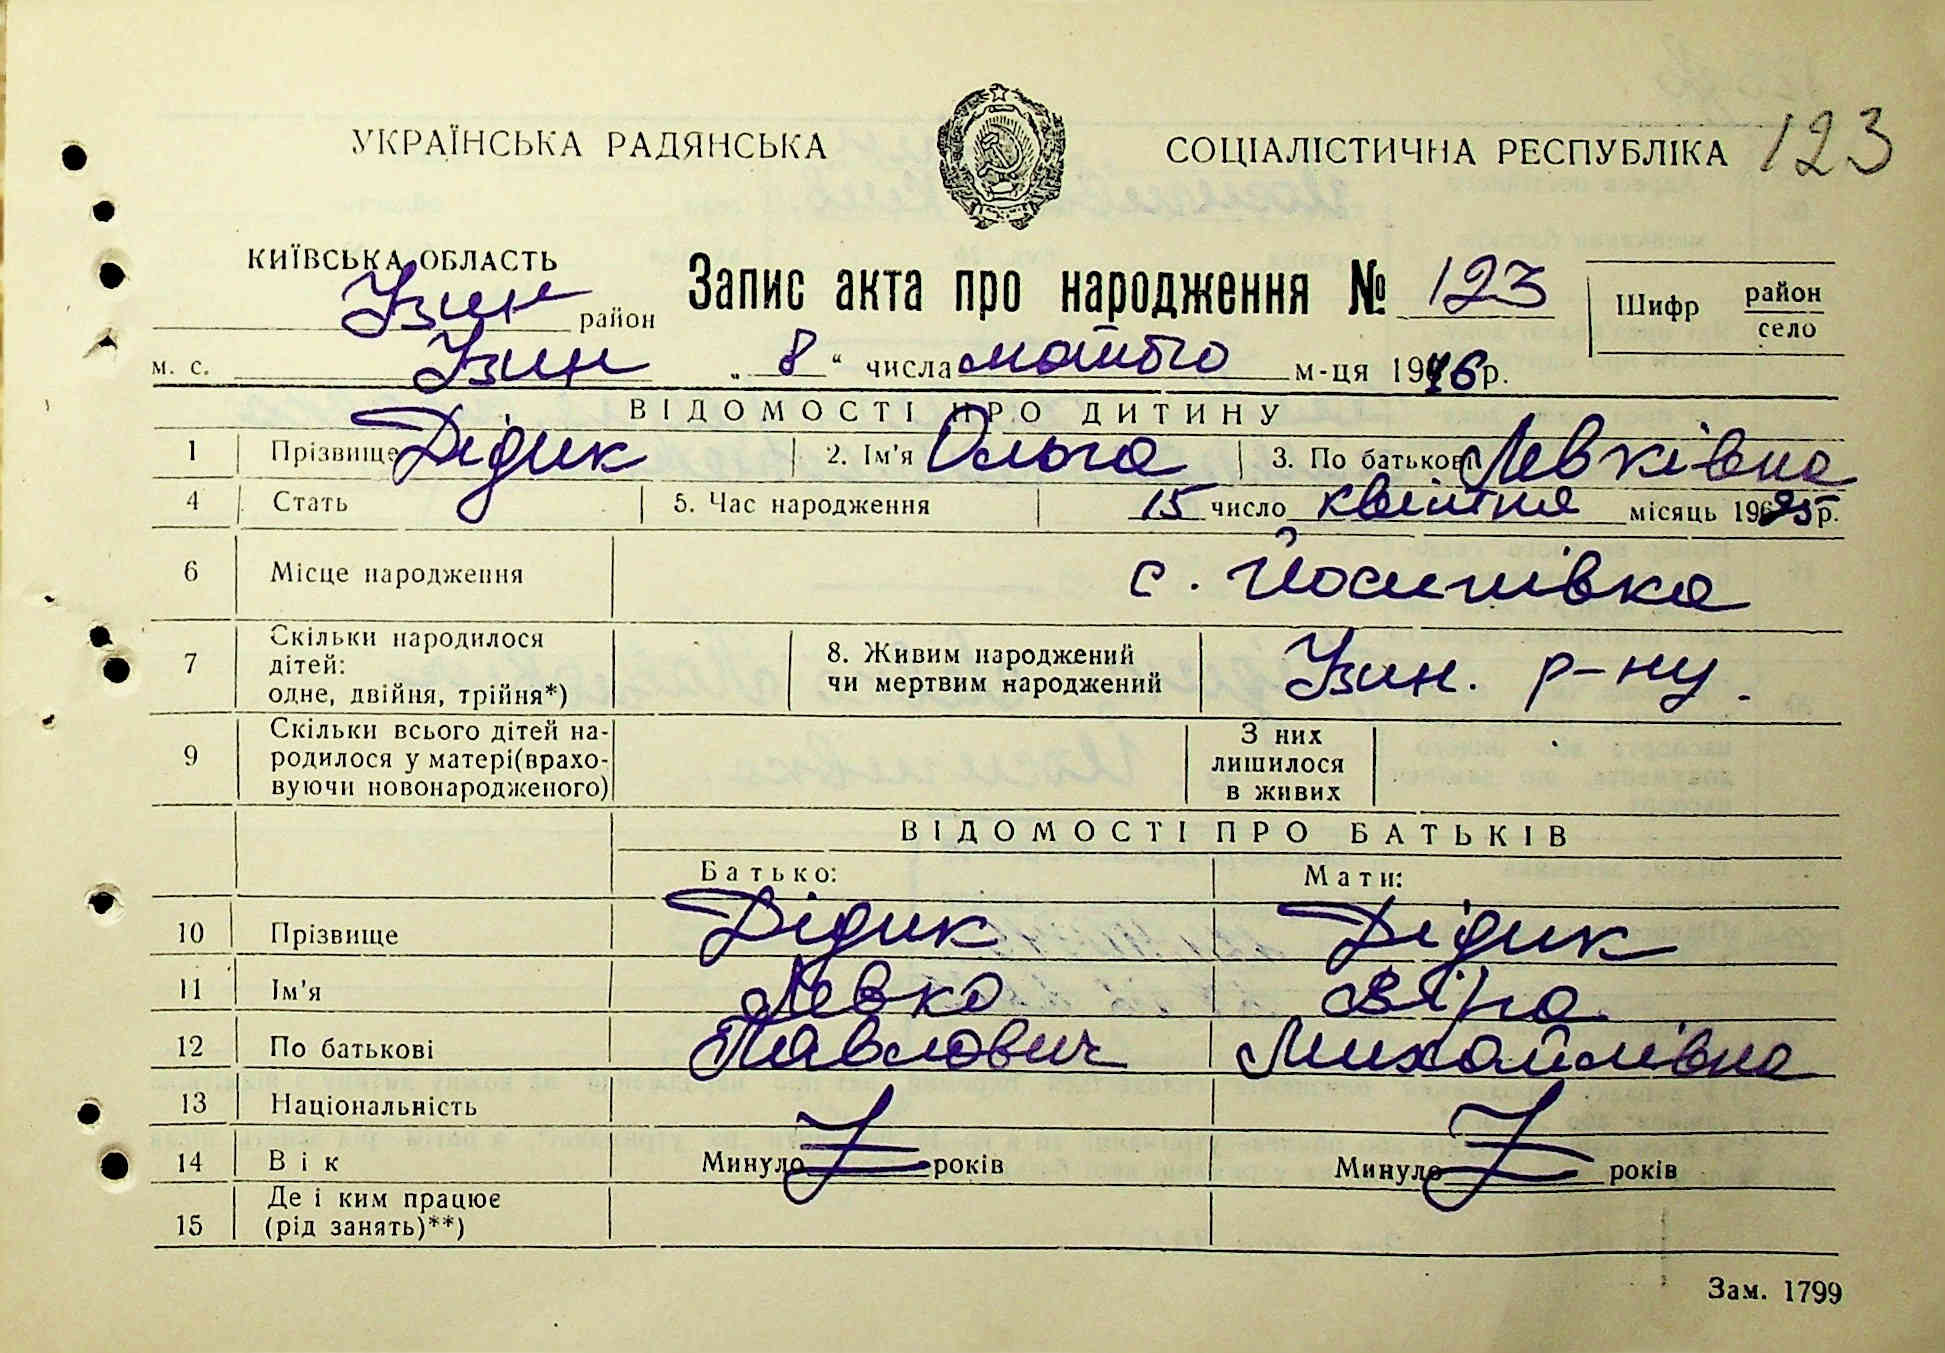 123
УКРАЇНСЬКА РАДЯНСЬКА СОЦІАЛІСТИЧНА РЕСПУБЛІКА
КИЇВСЬКА ОБЛАСТЬ
Узин район
Запис акта про народження № 123
Шифр район село
м. с. Узин „ 8 “ числа лютого м-ця 1946 р.
ВІДОМОСТІ ПРО ДИТИНУ
1 Прізвище Дідик 2. Ім'я Ольга 3. По батькові Левківна
4 Стать 5. Час народження 15 число квітня місяць 1925 р.
6 Місце народження с. Йосипівка
7 Скільки народилося дітей: одне, двійня, трійня*) 8. Живим народжений чи мертвим народжений Узин. р-ну.
9 Скільки всього дітей народилося у матері(враховуючи новонародженого) З них лишилося в живих
ВІДОМОСТІ ПРО БАТЬКІВ
Батько: Мати:
10 Прізвище Дідик Дідик
11 Ім'я Левко Віра
12 По батькові Павлович Михайлівна
13 Національність
14 Вік Минуло років Минуло років
15 Де і ким працює (рід занять)**)
Зам. 1799